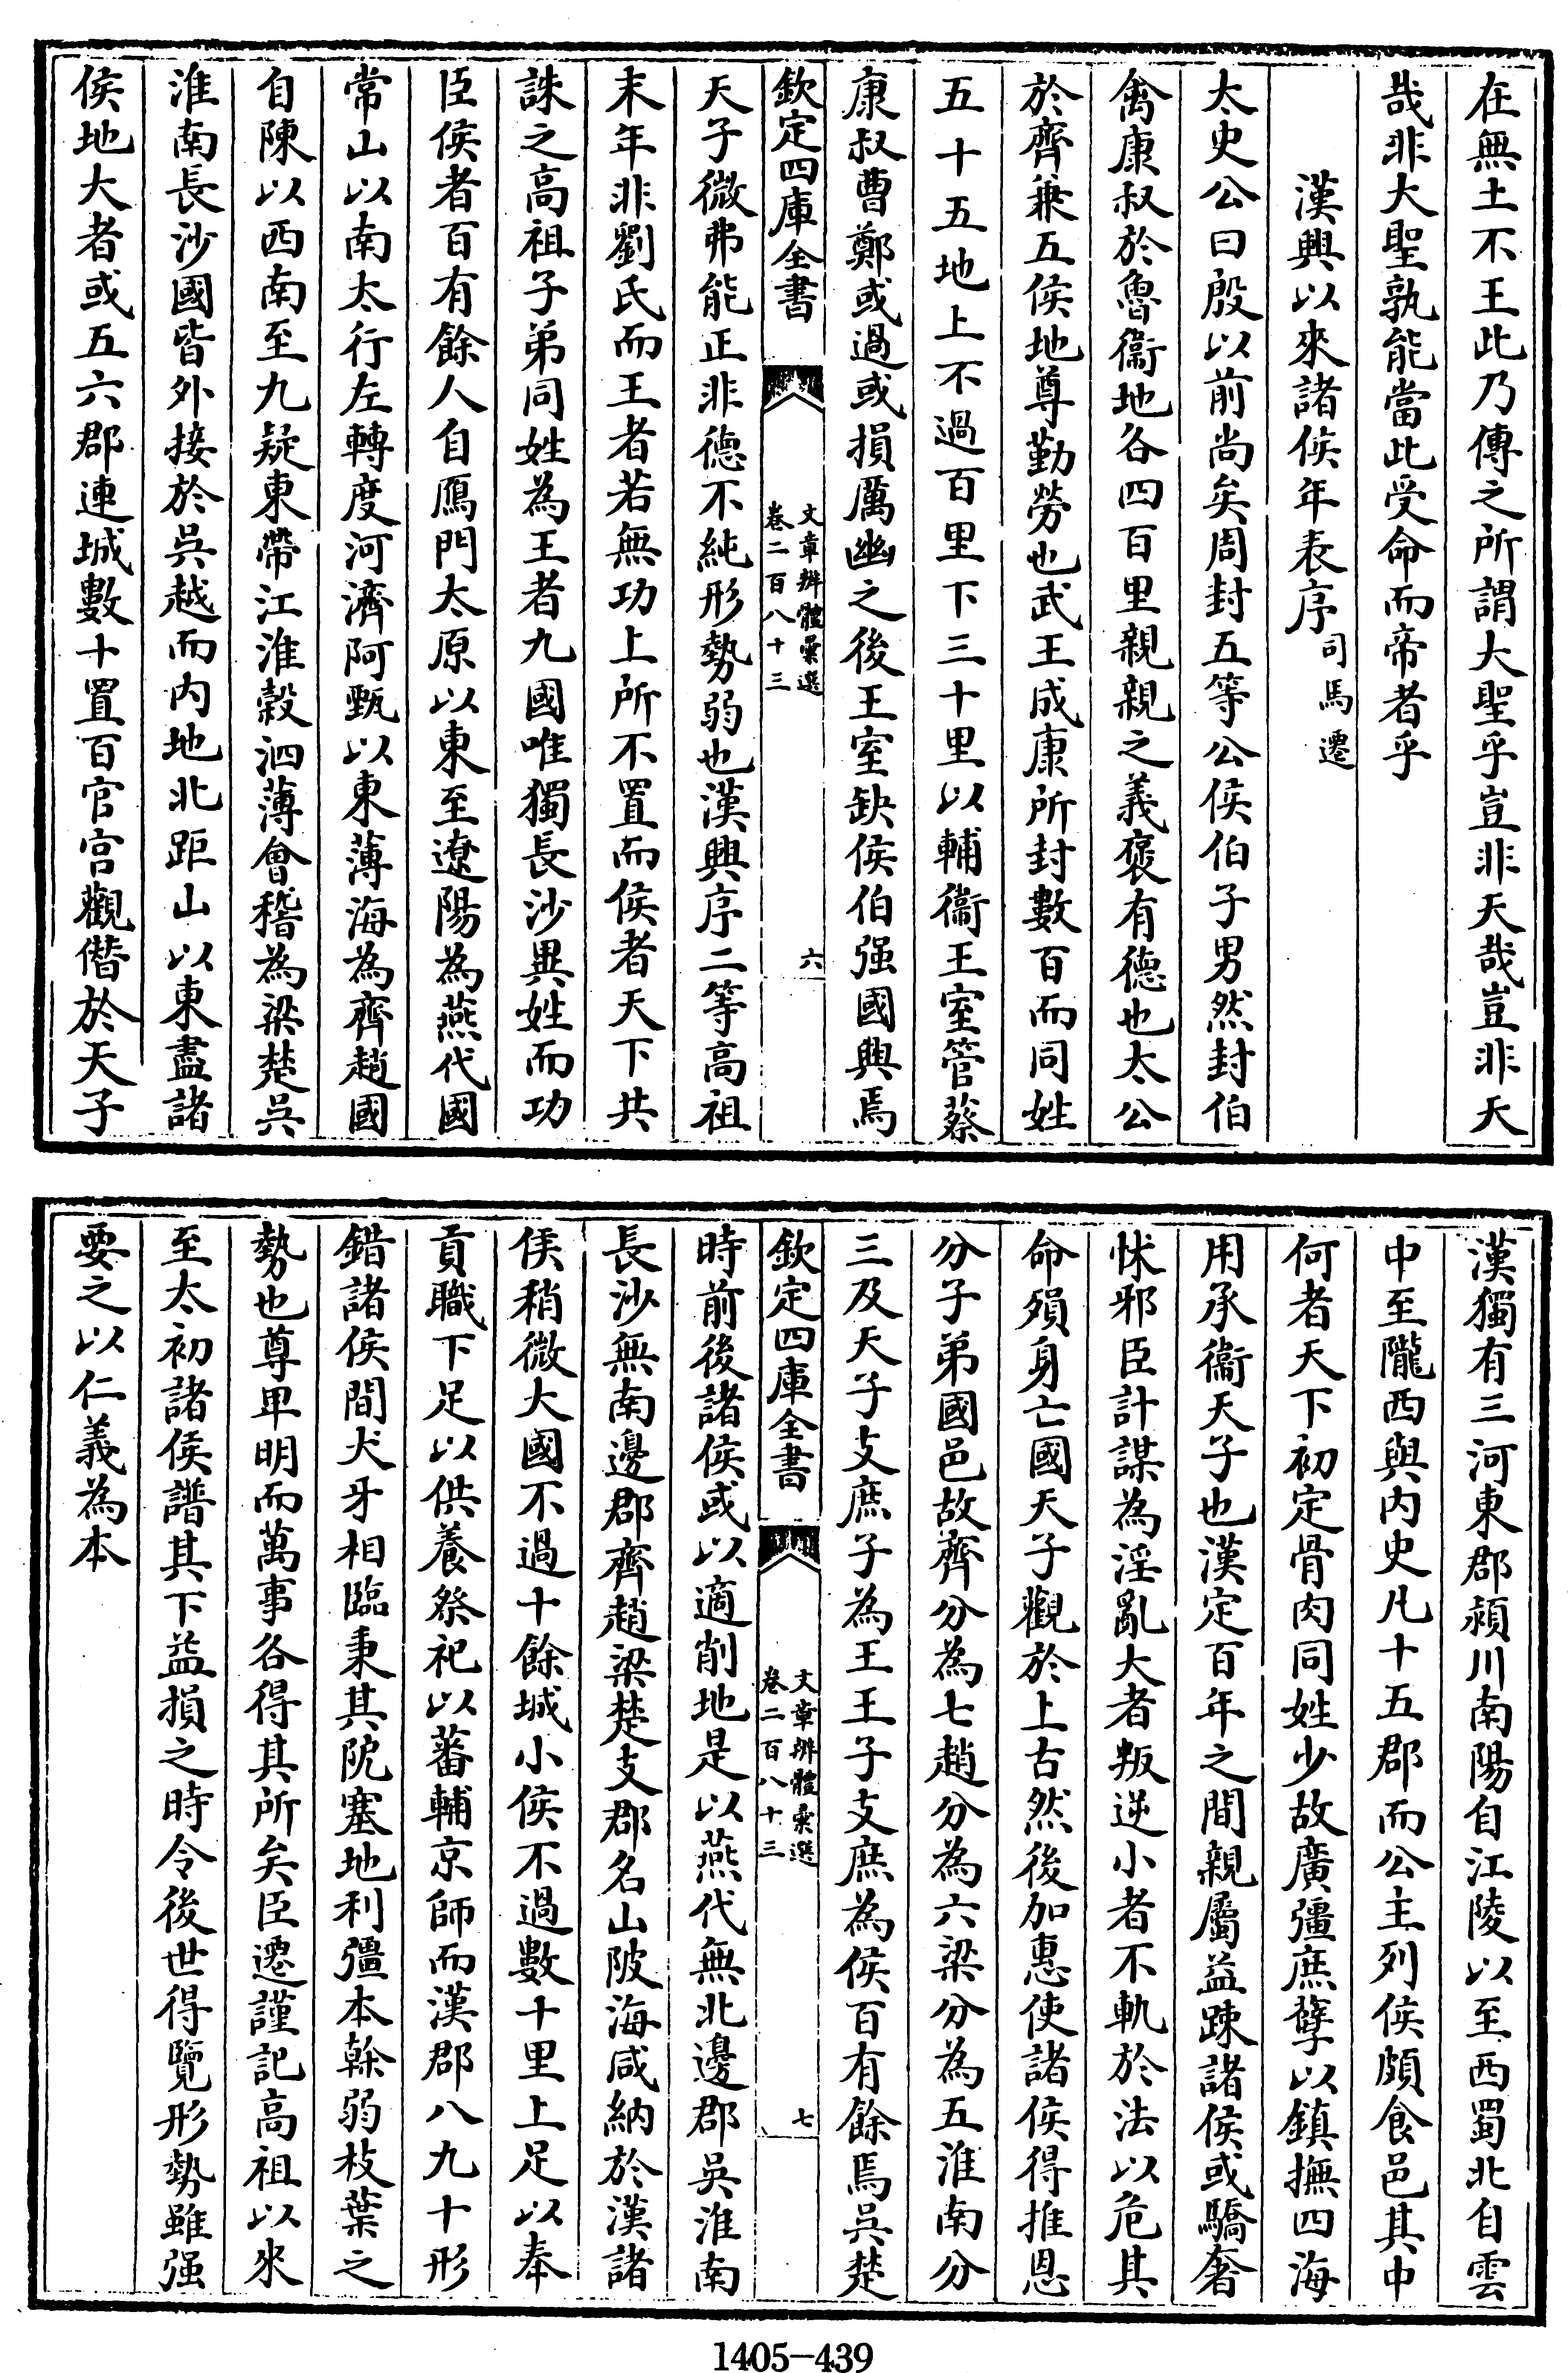 在無土不王此乃傳之所謂大聖乎豈非天哉豈非天
哉非大聖孰能當此受命而帝者乎
漢興以來諸侯年表序司馬遷
太史公曰殷以前尚矣周封五等公侯伯子男然封伯
禽康叔於魯衞地各四百里親親之義褒有德也太公
於齊兼五侯地尊勤勞也武王成康所封數百而同姓
五十五地上不過百里下三十里以輔衞王室管蔡
康叔曹鄭或過或損厲幽之後王室缺侯伯强國興焉
欽定四庫全書
文章辨體彙選
卷二百八十三
六
天子微弗能正非德不純形勢弱也漢興序二等高祖
末年非劉氏而王者若無功上所不置而侯者天下共
誅之高祖子弟同姓為王者九國唯獨長沙異姓而功
臣侯者百有餘人自鴈門太原以東至遼陽為燕代國
常山以南太行左轉度河濟阿甄以東薄海為齊趙國
自陳以西南至九疑東帶江淮穀泗薄會稽為梁楚吳
淮南長沙國皆外接於吳越而内地北距山以東盡諸
侯地大者或五六郡連城數十置百官宫觀僭於天子
漢獨有三河東郡潁川南陽自江陵以至西蜀北自雲
中至隴西與内史凡十五郡而公主列侯頗食邑其中
何者天下初定骨肉同姓少故廣彊庶孽以鎮撫四海
用承衞天子也漢定百年之間親屬益踈諸侯或驕奢
怵邪臣計謀為淫亂大者叛逆小者不軌於法以危其
命殞身亡國天子觀於上古然後加惠使諸侯得推恩
分子弟國邑故齊分為七趙分為六梁分為五淮南分
三及天子支庶子為王王子支庶為侯百有餘焉吳楚
欽定四庫全書
文章辨體彙選
卷二百八十三
七
時前後諸侯或以適削地是以燕代無北邊郡吳淮南
長沙無南邊郡齊趙梁楚支郡名山陂海咸納於漢諸
侯稍微大國不過十餘城小侯不過數十里上足以奉
貢職下足以供養祭祀以蕃輔京師而漢郡八九十形
錯諸侯間犬牙相臨秉其阨塞地利彊本幹弱枝葉之
勢也尊卑明而萬事各得其所矣臣遷謹記高祖以來
至太初諸侯譜其下益損之時令後世得覽形勢雖强
要之以仁義為本
1405-439